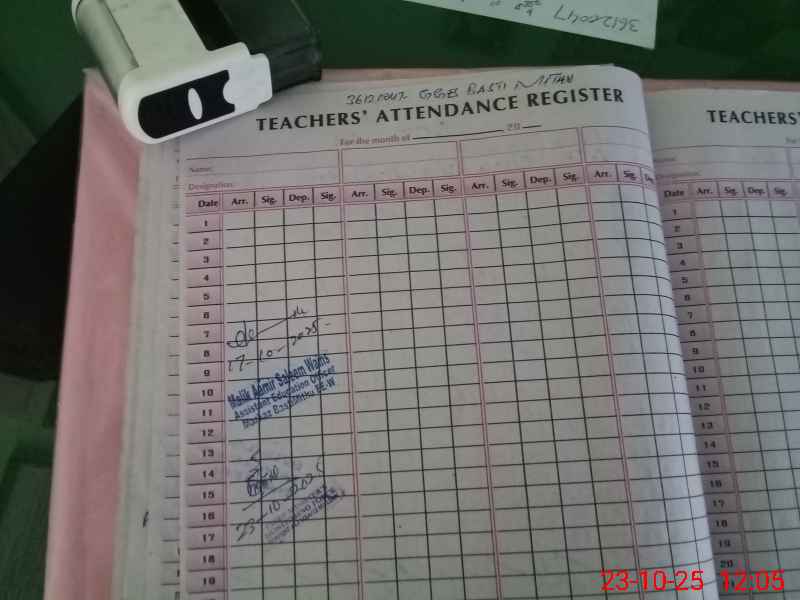 36120047
36121042 GGES BASTI MITAN
TEACHERS' ATTENDANCE REGISTER
For the month of 20
Name:
Designation:
Date Arr. Sig. Dep. Sig. Arr. Sig. Dep. Sig. Arr. Sig. Dep. Sig. Arr. Sig.
1
2
3
4
5
6
7
8
9
10
11
12
13
14
15
16
17
18
19
17-10-2025
Malik Aamir Saleem Waris
Assistant Education Officer
Markaz Basti
23-10-2025
TEACHERS'
Date Arr. Sig. Dep. Sig.
1
2
3
4
5
6
7
8
9
10
11
12
13
14
15
16
17
18
19
20
23-10-25 12:05